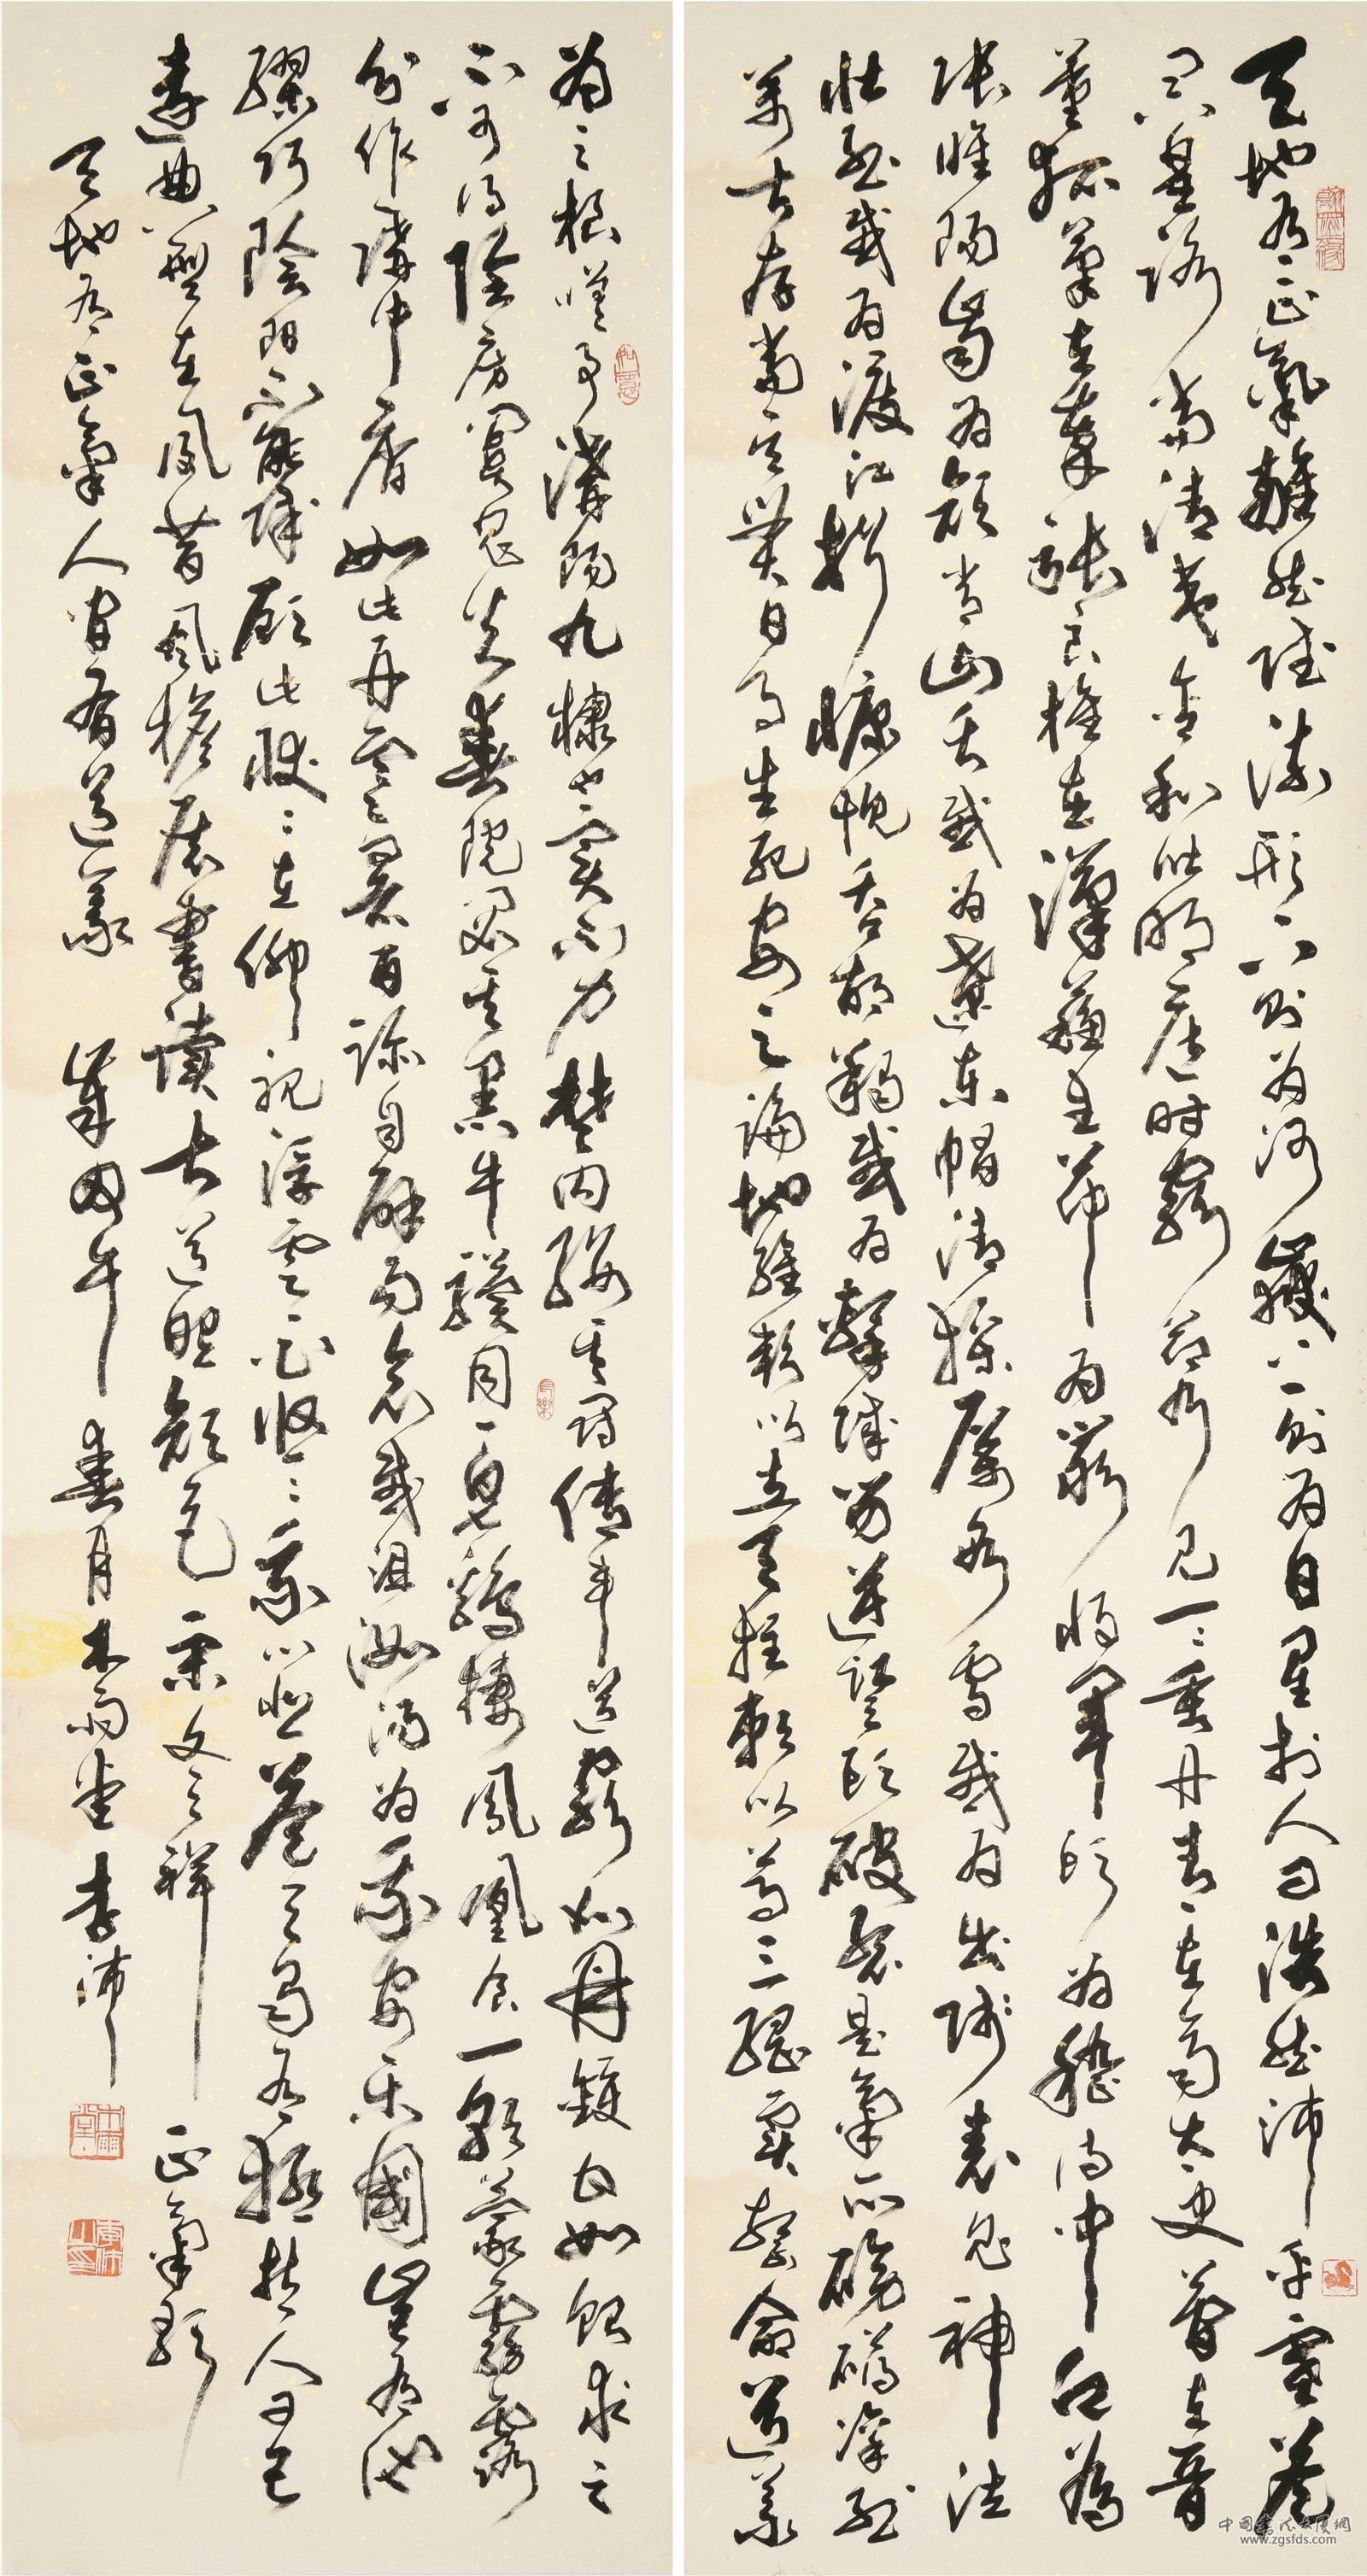 天地有正氣雜然賦流形下則為河嶽上則為日星於人曰浩然沛乎塞蒼
冥皇路當清夷含和吐明庭時窮節乃見一一垂丹青在齊太史簡在晉
董狐筆在秦張良椎在漢蘇武節為嚴將軍頭為嵇侍中血為
張睢陽齒為顏常山舌或為遼東帽清操厲冰雪或為出師表鬼神泣
壯烈或為渡江楫慷慨吞胡羯或為擊賊笏逆豎頭破裂是氣所磅礴凜烈
萬古存當其貫日月生死安足論地維賴以立天柱賴以尊三綱實繫命道義
為之根嗟予遘陽九隸也實不力楚囚纓其冠傳車送窮北鼎鑊甘如飴求之
不可得陰房闃鬼火春院閟天黑牛驥同一皂雞棲鳳凰食一朝蒙霧露
分作溝中瘠如此再寒暑百沴自辟易哀哉沮洳場為我安樂國豈有他
繆巧陰陽不能賊顧此耿耿在仰視浮雲白悠悠我心悲蒼天曷有極哲人日已
遠典型在夙昔風檐展書讀古道照顏色 宋文天祥 正氣歌
天地有正氣人間有道義 歲甲午 春月木雨堂李沛
www.zgsfds.com